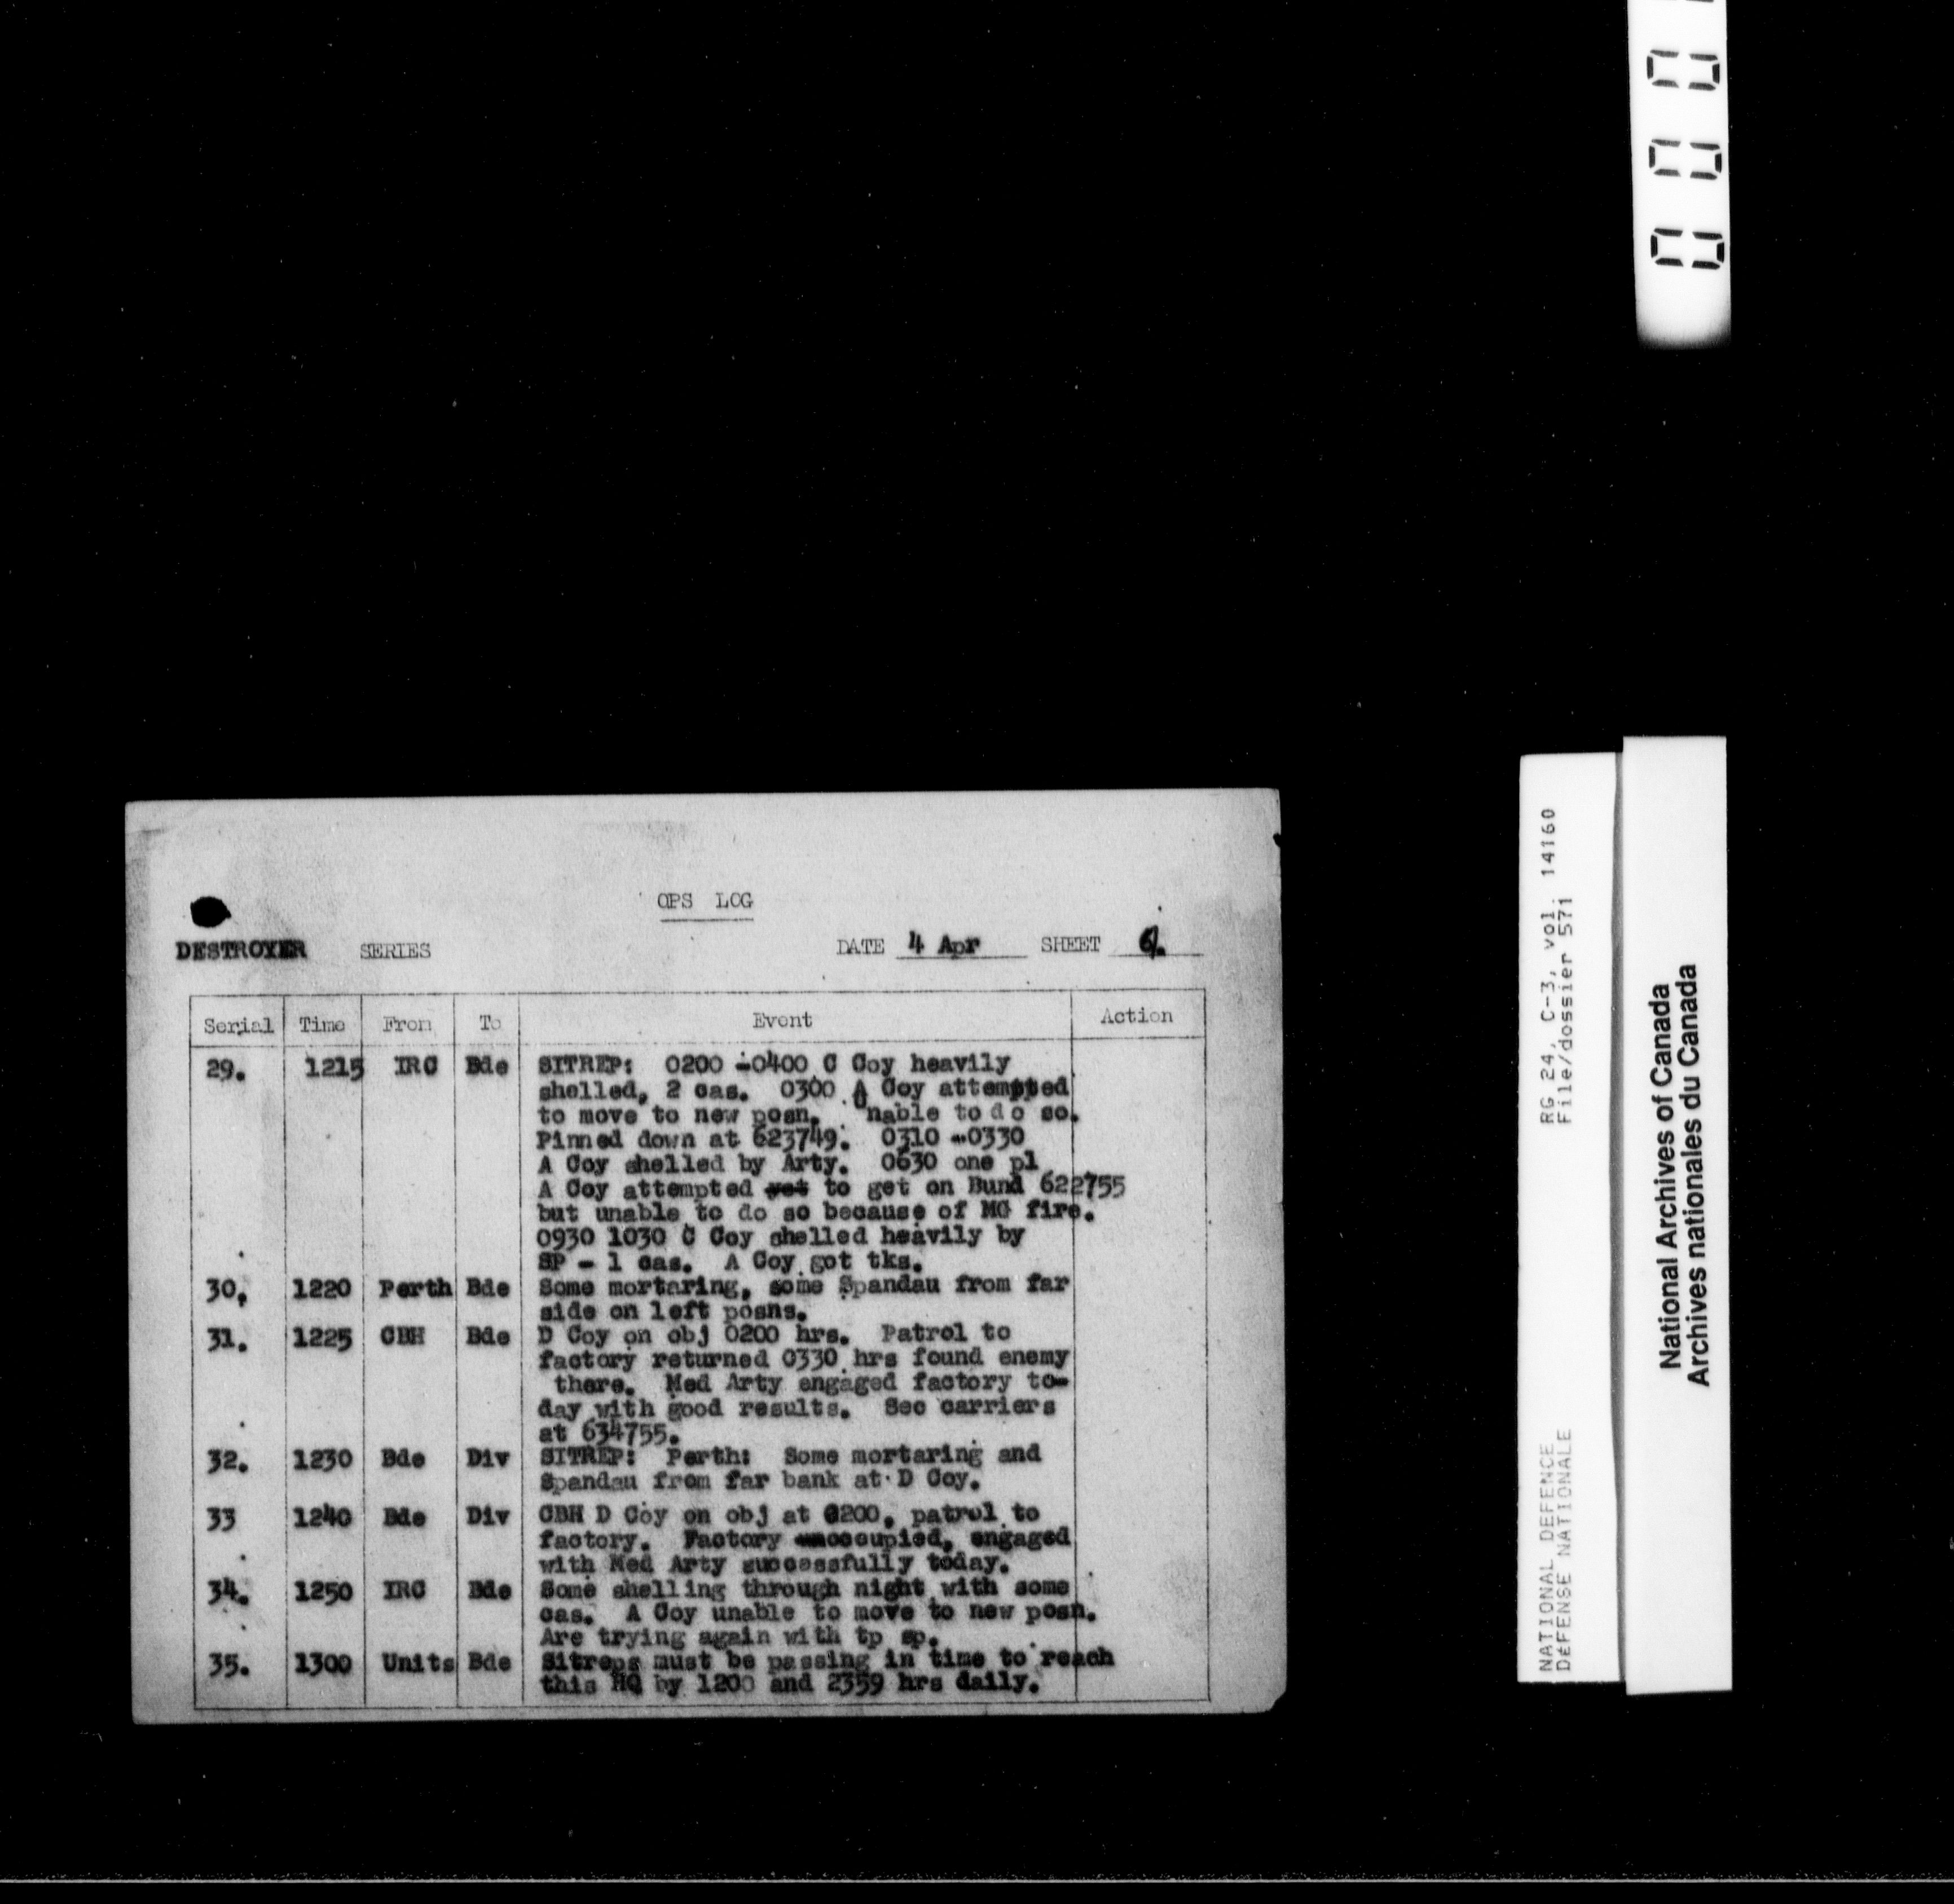 OPS LOG
DESTROYER SERIES DATE 4 Apr SHEET 6.
Serial Time From To Event Action
29. 1215 IRC Bde SITREP: 0200 -0400 C Coy heavily
shelled, 2 cas. 0300 A Coy attempted
to move to new posn. Unable to do so.
Pinned down at 623749. 0310 -0330
A Coy shelled by Arty. 0630 one pl
A Coy attempted to get on Bund 622755
but unable to do so because of MG fire.
0930 1030 C Coy shelled heavily by
SP - 1 cas. A Coy got tks.
30. 1220 Perth Bde Some mortaring, some Spandau from far
side on left posns.
31. 1225 CBH Bde D Coy on obj 0200 hrs. Patrol to
factory returned 0330 hrs found enemy
there. Med Arty engaged factory to-
day with good results. Sec carriers
at 634755.
32. 1230 Bde Div SITREP: Perth: Some mortaring and
Spandau from far bank at D Coy.
33 1240 Bde Div CBH D Coy on obj at 0200, patrol to
factory. Factory occupied, engaged
with Med Arty successfully today.
34. 1250 IRC Bde Some shelling through night with some
cas. A Coy unable to move to new posn.
Are trying again with tp sp.
35. 1300 Units Bde Sitreps must be passing in time to reach
this HQ by 1200 and 2359 hrs daily.
000
RG 24, C-3, vol. 14160
File/dossier 571
NATIONAL DEFENCE
DéFENSE NATIONALE
National Archives of Canada
Archives nationales du Canada